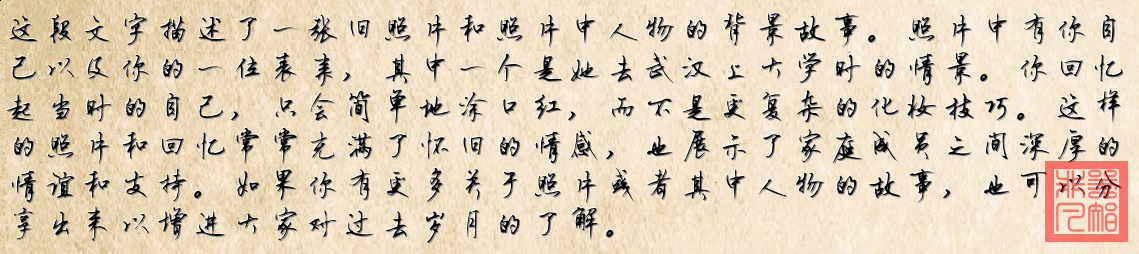 这段文字描述了一张旧照片和照片中人物的背景故事。照片中有你自
己以及你的一位表亲，其中一个是她去武汉上大学时的情景。你回忆
起当时的自己，只会简单地涂口红，而不是更复杂的化妆技巧。这样
的照片和回忆常常充满了怀旧的情感，也展示了家庭成员之间深厚的
情谊和支持。如果你有更多关于照片或者其中人物的故事，也可以分
享出来以增进大家对过去岁月的了解。